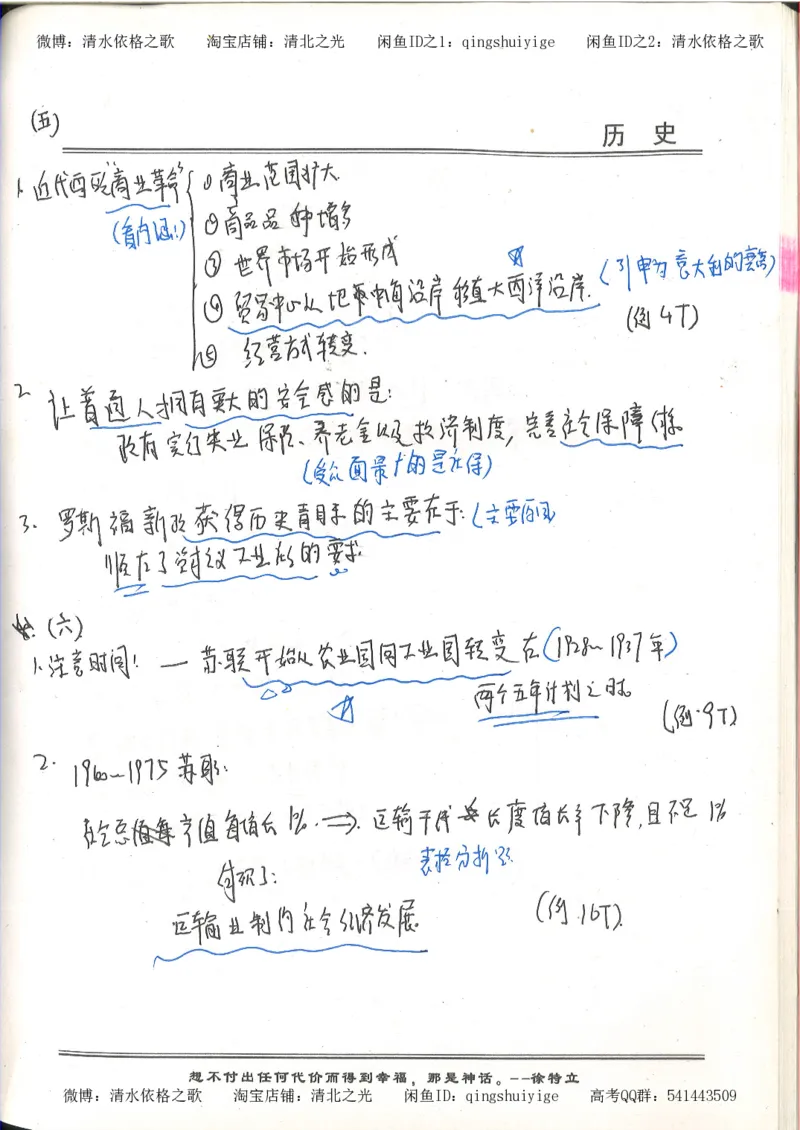 微博：清水依格之歌 淘宝店铺：清北之光 闲鱼ID之1：qingshuiyige 闲鱼ID之2：清水依格之歌
(五)
历 史
1. 近代西欧"商业革命"
(看内涵!)
① 商业范围扩大
② 商品品种增多
③ 世界市场开始形成
④ 贸易中心从地中海沿岸移至大西洋沿岸.
(引申为意大利的衰落)
(例4T)
⑤ 经营方式转变.
2 让普通人拥有更大的安全感的是:
政府实行失业保险、养老金以及救济制度, 完善社会保障体系
(受众面最广的是社保)
3. 罗斯福新政获得历史青睐的主要在于: (主要原因
顺应了当时工业社会的要求.
(六)
1. 注意时间! — 苏联开始从农业国向工业国转变在(1928~1937年)
两个五年计划之时.
(例.9T)
2. 1960~1975 苏联:
社会总产值每增长1%. ⟹ 运输干线长度增长率下降,且不足1%
表格分析题
体现了:
运输业制约社会经济发展.
(例.16T).
想不付出任何代价而得到幸福，那是神话。--徐特立
微博：清水依格之歌 淘宝店铺：清北之光 闲鱼ID：qingshuiyige 高考QQ群：541443509